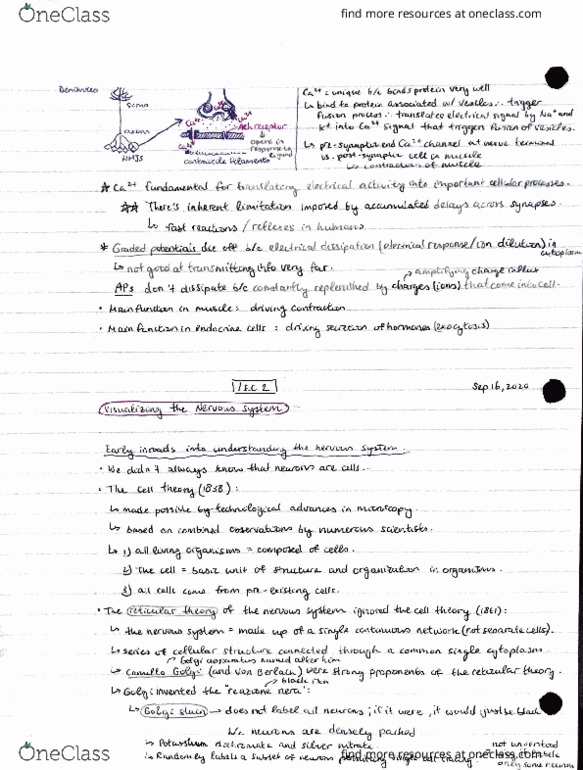 OneClass
find more resources at oneclass.com
Dendrites
soma
axons
NMJS
Ca²⁺
Ca²⁺
Ca²⁺
Ach receptor
opens in response to ligand
contractile filaments
Ca²⁺ = unique b/c binds protein very well
↳ bind to protein associated w/ vesicles ∴ trigger
fusion process ∴ translates electrical signal by Na⁺ and
K⁺ into Ca²⁺ signal that triggers fusion of vesicles.
↳ pre-synaptic end Ca²⁺ channel at nerve terminal
vs. post-synaptic cell in muscle
↳ contraction of muscle
* Ca²⁺ fundamental for translating electrical activity into important cellular processes.
** There's inherent limitation imposed by accumulated delays across synapses.
↳ fast reactions / reflexes in humans
* Graded potentials die off b/c electrical dissipation (electrical response/ion dilution) in cytoplasm
↳ not good at transmitting info very far.
amplifying charge
APs don't dissipate b/c constantly replenished by charges (ions) that come into cell.
• Main function in muscle: driving contraction
• Main function in Endocrine cells: driving secretion of hormones (exocytosis)
LEC 2
Sep 16, 2020
Visualizing the Nervous System
Early inroads into understanding the nervous system.
• We didn't always know that neurons are cells...
• The cell theory (1838):
↳ made possible by technological advances in microscopy.
↳ based on combined observations by numerous scientists.
↳ 1) all living organisms = composed of cells.
2) The cell = basic unit of structure and organization in organisms.
3) all cells come from pre-existing cells.
• The reticular theory of the nervous system ignored the cell theory (1861):
↳ the nervous system = made up of a single continuous network (not separate cells).
↳ series of cellular structure connected through a common single cytoplasm.
Golgi apparatus named after him
↳ Camillo Golgi (and von Gerlach) were strong proponents of the reticular theory.
black rxn
↳ Golgi invented the "reazione nera":
↳ Golgi stain → does not label all neurons; if it were, it would just be black
b/c neurons are densely packed
↳ Potassium dichromate and silver nitrate
↳ Randomly labels a subset of neurons
not understood
only some neurons
OneClass
find more resources at oneclass.com